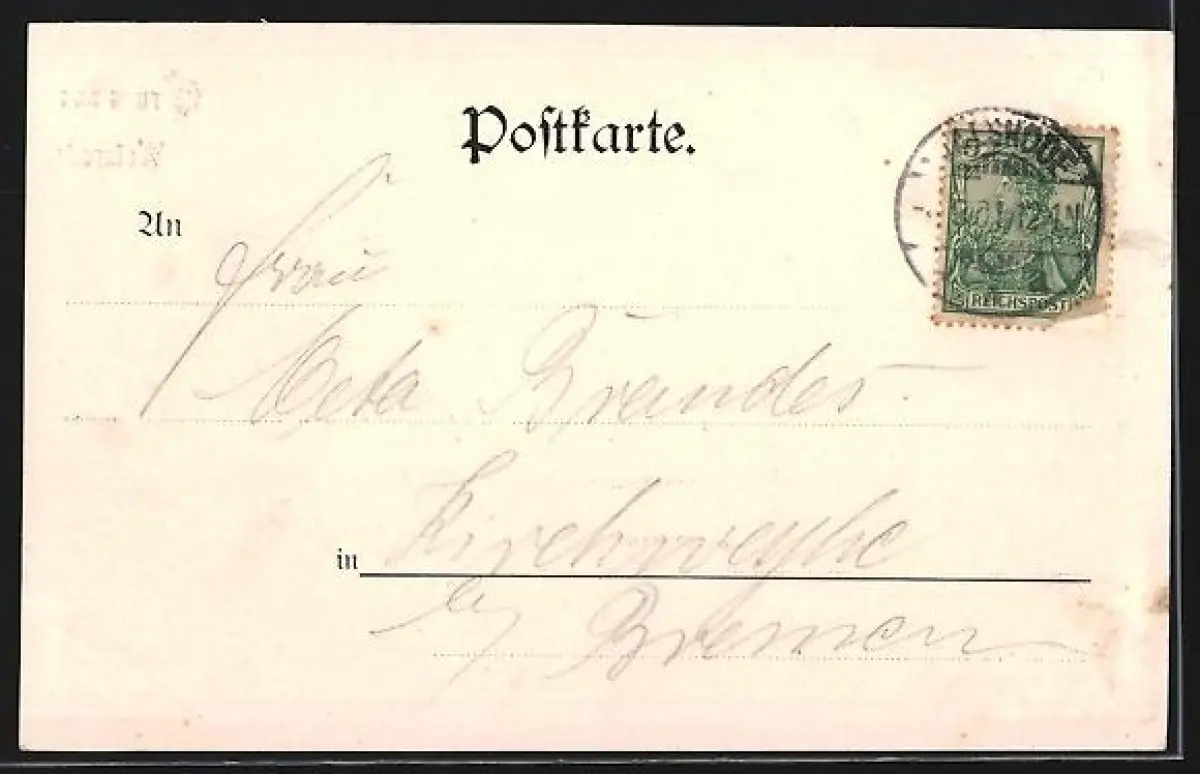 Postkarte.
An
Frau
Meta Brandes.
in Kirchweyhe
b/ Bremen
REICHSPOST